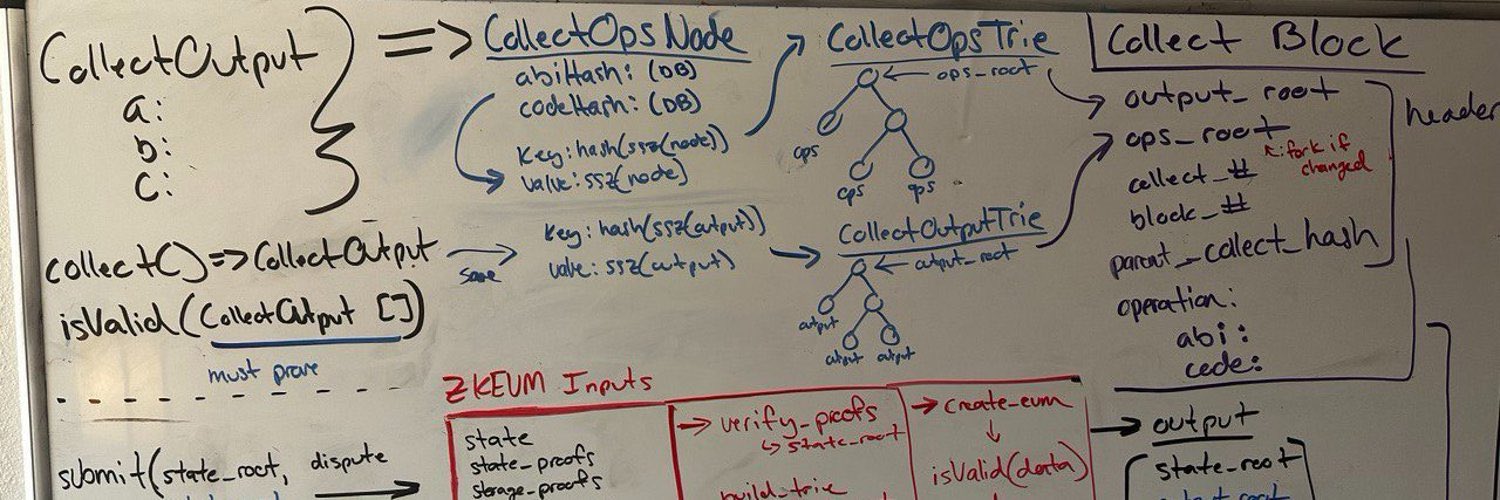 CollectOutput
a:
b:
c:
=>
CollectOpsNode
abiHash: (DB)
codeHash: (DB)
Key: hash(ssz(node))
value: ssz(node)
CollectOpsTrie
ops_root
ops
ops
ops
Collect Block
output_root
ops_root
↖: fork if
changed
collect_#
block_#
parent_collect_hash
header
operation:
abi:
code:
collect() => CollectOutput
save
isValid(CollectOutput [])
must prove
Key: hash(ssz(output))
value: ssz(output)
CollectOutputTrie
output_root
output
output
output
ZKEVM Inputs
state
state_proofs
storage_proofs
verify_proofs
↳ state_root
build_trie
create_evm
isValid(data)
output
state_root
submit(state_root,
dispute